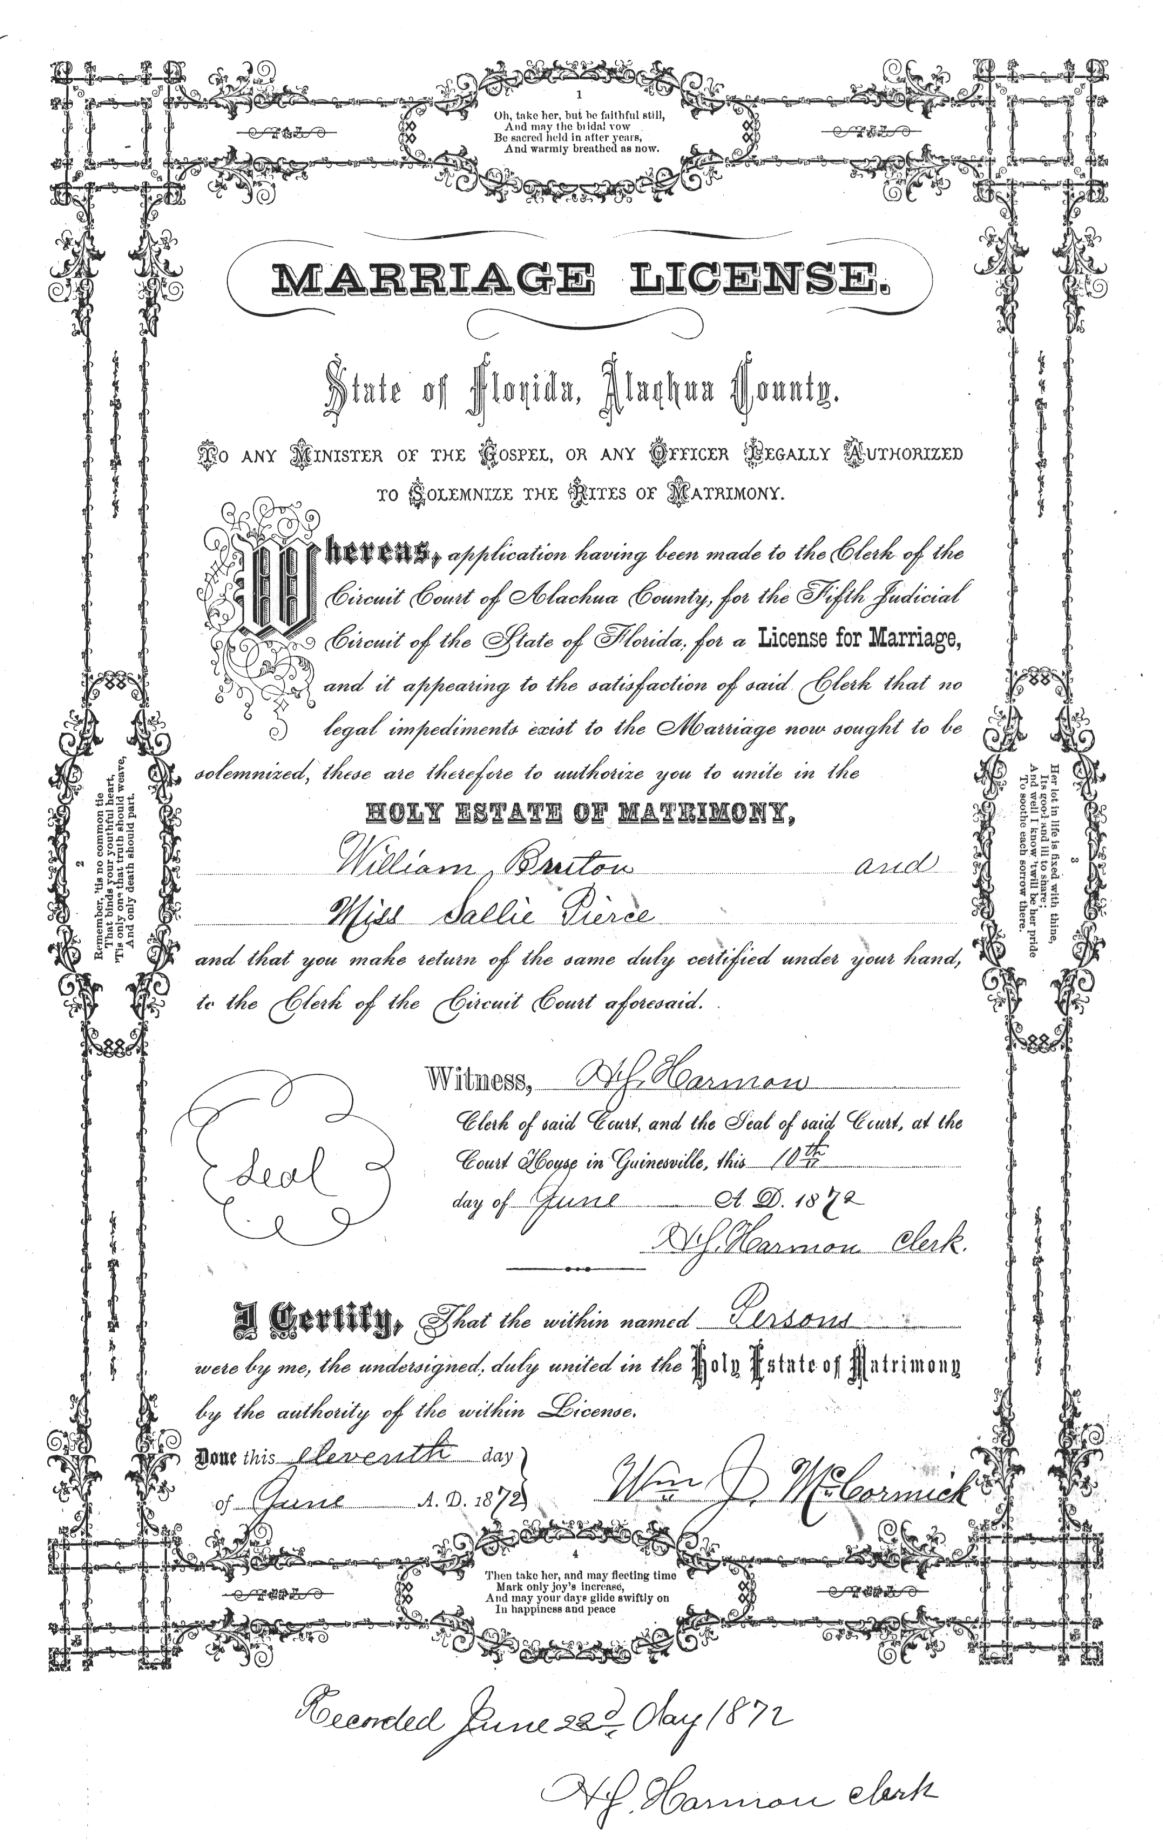 1
Oh, take her, but be faithful still,
And may the bridal vow
Be sacred held in after years,
And warmly breathed as now.
MARRIAGE LICENSE.
State of Florida, Alachua County.
TO ANY MINISTER OF THE GOSPEL, OR ANY OFFICER LEGALLY AUTHORIZED
TO SOLEMNIZE THE RITES OF MATRIMONY.
Whereas, application having been made to the Clerk of the
Circuit Court of Alachua County, for the Fifth Judicial
Circuit of the State of Florida, for a License for Marriage,
and it appearing to the satisfaction of said Clerk that no
legal impediments exist to the Marriage now sought to be
solemnized, these are therefore to authorize you to unite in the
HOLY ESTATE OF MATRIMONY,
William Bruton and
Miss Sallie Pierce
and that you make return of the same duly certified under your hand,
to the Clerk of the Circuit Court aforesaid.
2
Remember, 'tis no common tie
That binds your youthful heart,
'Tis only one that truth should weave,
And only death should part.
3
Her lot in life is fixed with thine,
Its good and ill to share;
And well I know 'twill be her pride
To soothe each sorrow there.
Seal
Witness, H.J. Harmon
Clerk of said Court, and the Seal of said Court, at the
Court House in Gainesville, this 10th
day of June A. D. 1872
H.J. Harmon Clerk.
I Certify, That the within named Persons
were by me, the undersigned, duly united in the Holy Estate of Matrimony
by the authority of the within License.
Done this eleventh day
of June A. D. 1872
Wm J. McCormick
4
Then take her, and may fleeting time
Mark only joy's increase,
And may your days glide swiftly on
In happiness and peace
Recorded June 22d day 1872
H.J. Harmon clerk